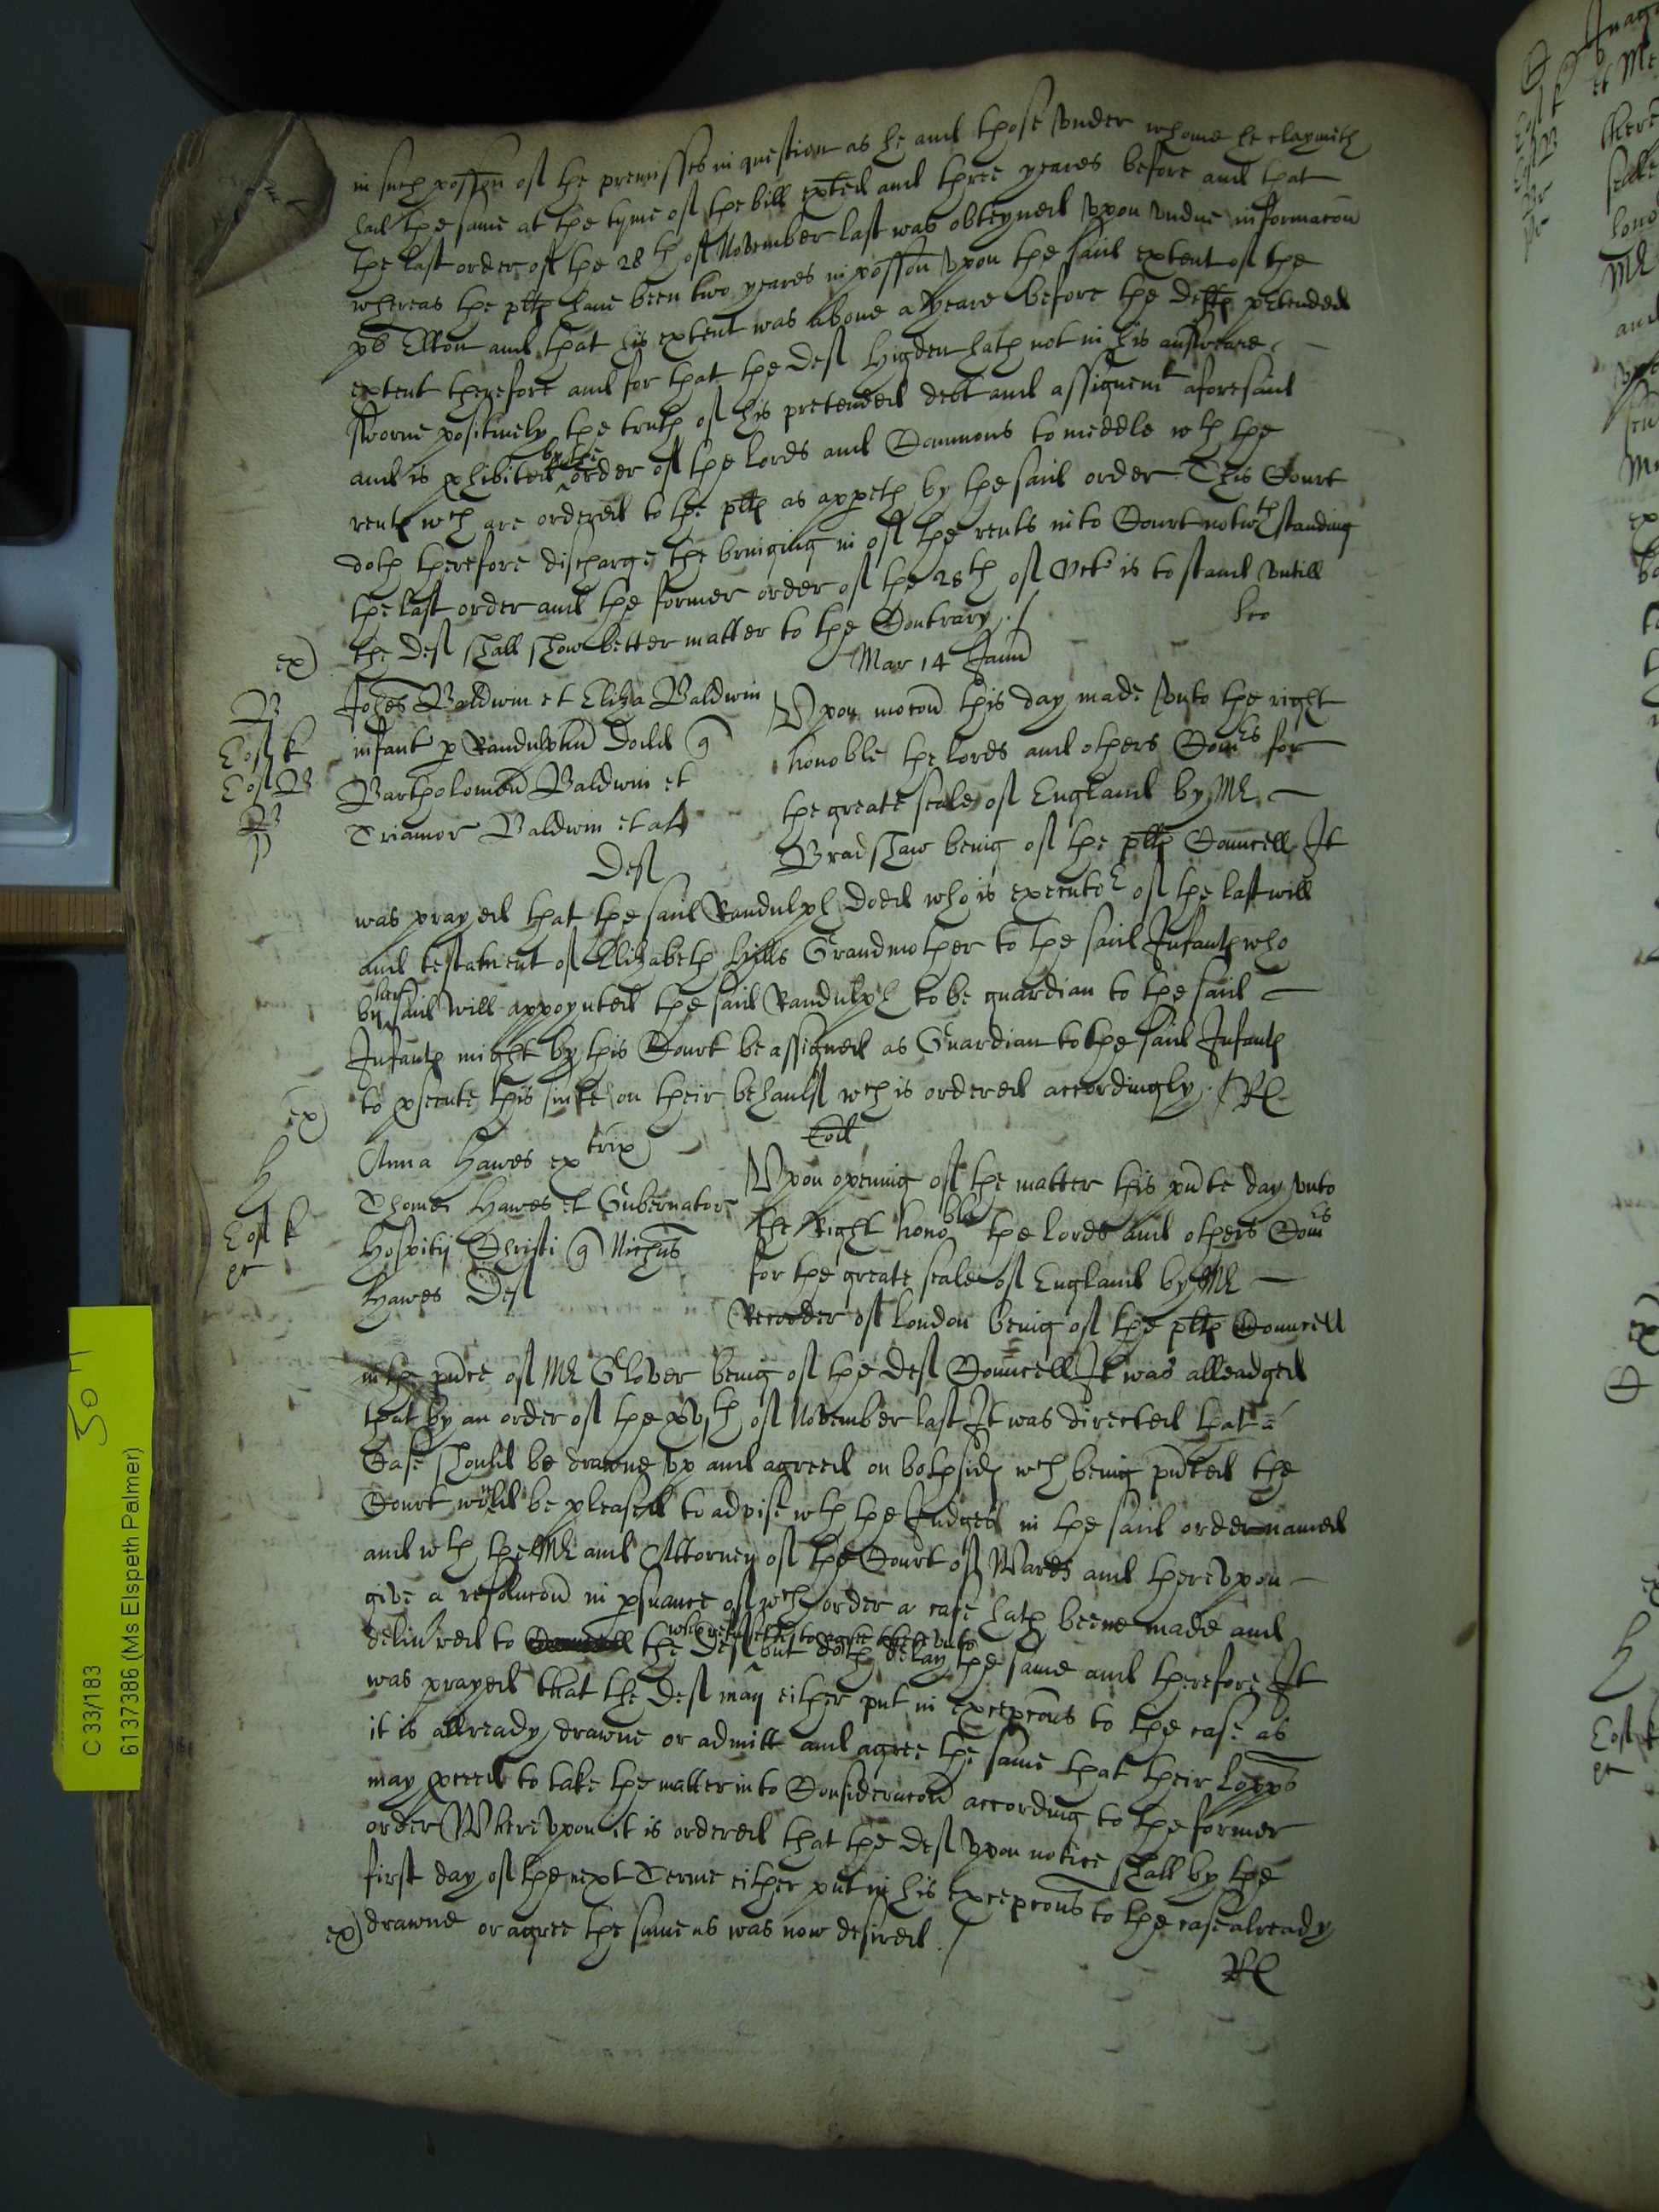 in such possion of the premisses in question as he and those under whome he claymeth
had the same at the tyme of the bill exted and three yeares before and that
the last order of the 28th of November last was obteyned upon undue informacon
whereas the plts have been two yeares in possion upon the said extent of the
Elton and that his extent was above a yeare before the Defts pretended
extent therefore and for that the Def Higden hath not in his answeare
sworne positively the truth of his pretended debt and assignemt aforesaid
and is phibited by the order of the Lords and Commons to meddle wth the
rents wch are ordered to the plts as appeth by the said order This Court
doth therefore discharge the bringing in of the rents into Court notwthstanding
the last order and the former order of the 28th of Octr is to stand untill
the Def shall show better matter to the Contrary ./
ex)
Mar 14 Janii
Johes Baldwin et Eliza Baldwin
infant p Randulphu Dodd q
Bartholomeu Baldwin et
Triamor Baldwin et al
Def
B
Eos k
Eos B
B
Upon mocon this day made unto the right
honoble the Lords and others Comrs for
the greate seale of England by Mr
Bradshaw being of the plts Councell It
was prayed that the said Randulph Dodd who is executor of the last will
and testament of Elizabeth Hills Grandmother to the said Infants who
by her said will appoynted the said Randulph to be guardian to the said
Infants might by this Court be assigned as Guardian to the said Infants
to psecute this suite on their behaulf wch is ordered accordingly ./ RL
ex)
Eod
Anna Hawes extrix
Thome Hawes et Gubernatores
Hospitij Christi q Nichus
Hawes Def
H
Eos k
Upon opening of the matter this pnte day unto
the Right honoble the Lords and others Comrs
for the greate seale of England by Mr
Recorder of London being of the plts Councell
in the pnce of Mr Glover being of the Def Councell It was alleadged
that by an order of the xvth of November last It was directed that a
Case should be drawne up and agreed on both sides wch being pnted the
Court would be pleased to advise wth the Judges in the said order named
and wth the Mr and Attorney of the Court of Wards and thereupon
give a resolucon in psuance of wch order a case hath beene made and
delivred to Councell the Def who refuseth to agree thereunto but doth delay the same and therefore It
was prayed that the Def may either put in excepcons to the case as
it is allready drawne or admitt and agree the same that their Lopps
may pceed to take the matter into Consideracon according to the former
order Whereupon it is ordered that the Def upon notice shall by the
first day of the next Terme either put in his excepcons to the case already
ex) drawne or agree the same as was now desired ./
RL
30 11
C 33/183
6137386 (Ms Elspeth Palmer)